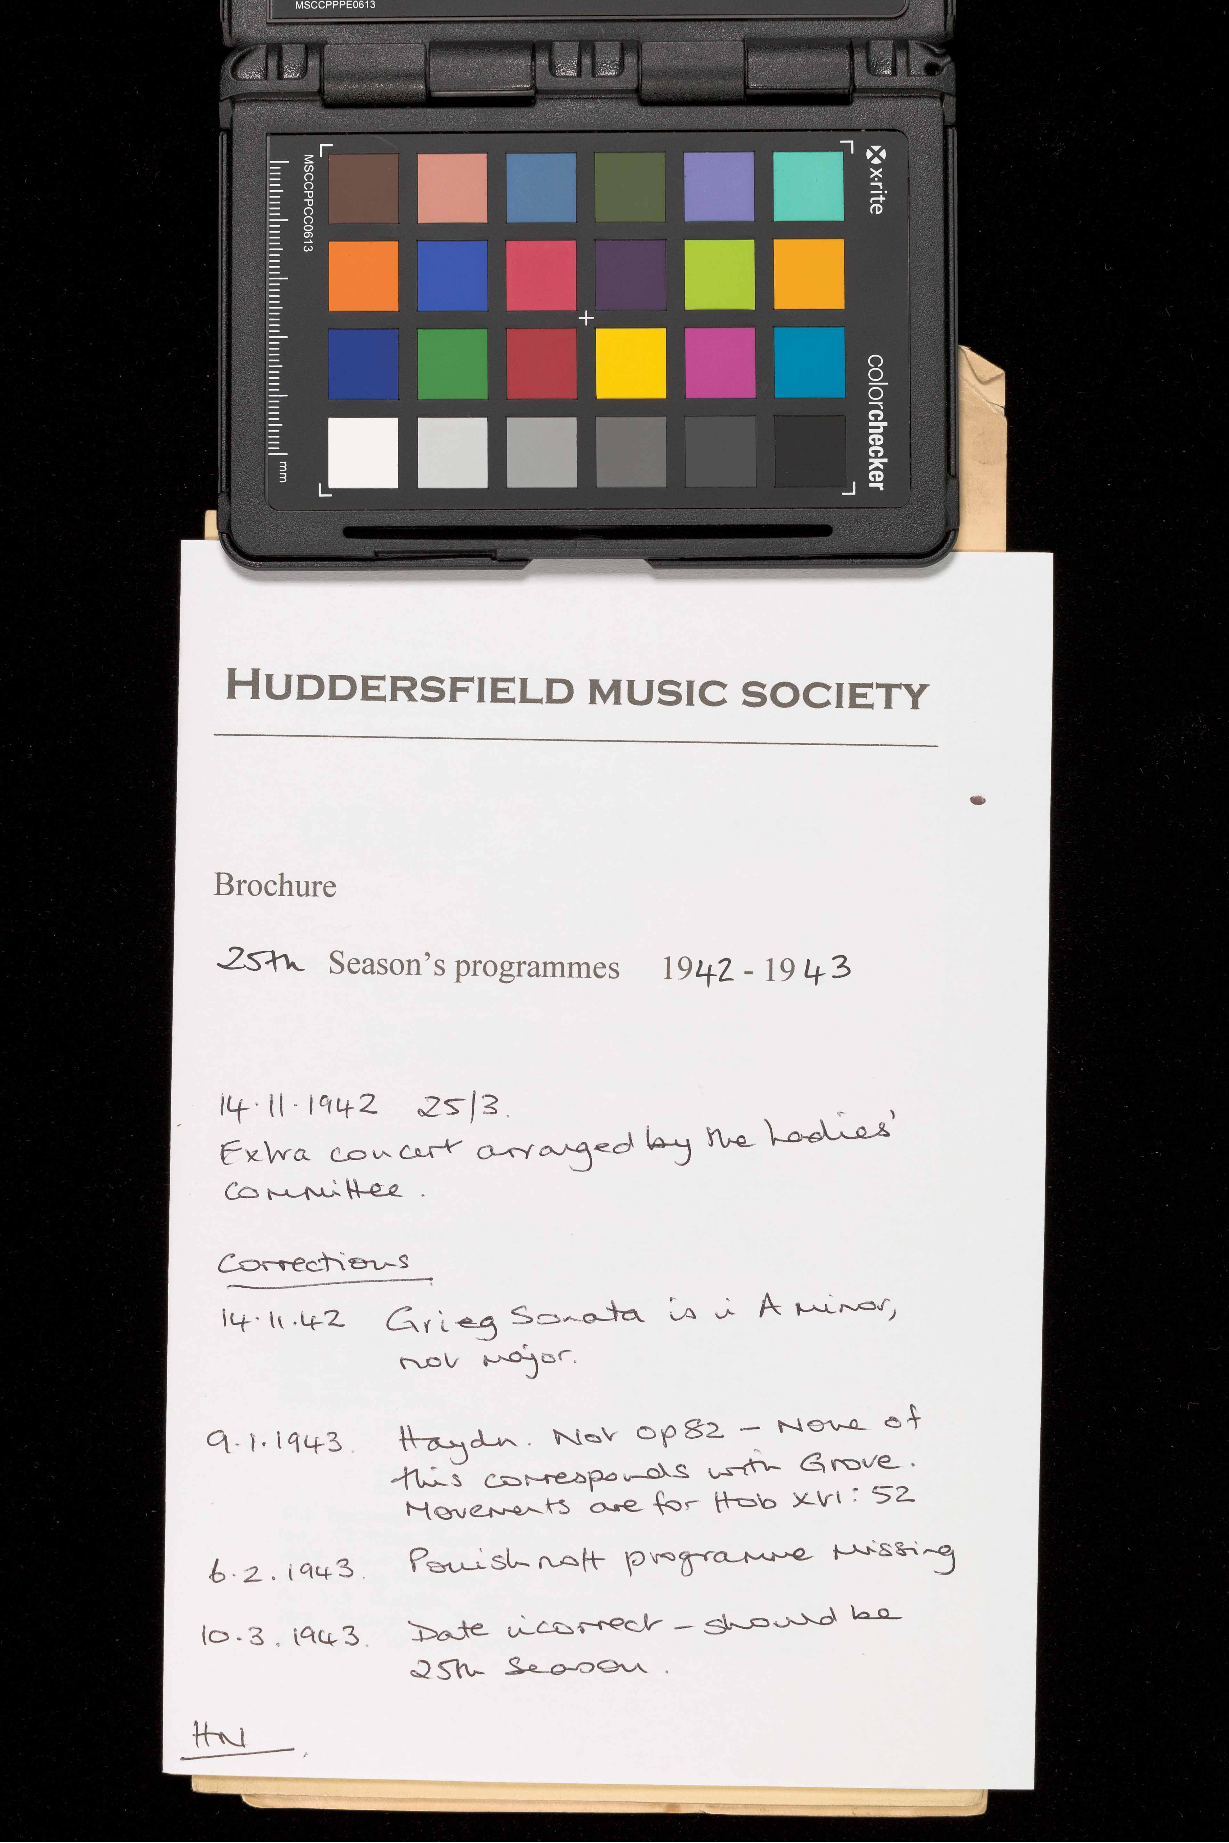 MSCCPPPE0613
MSCCPPCC0613
x-rite
colorchecker
mm
HUDDERSFIELD MUSIC SOCIETY
Brochure
25th Season's programmes 1942 - 1943
14.11.1942 25/3.
Extra concert arranged by the Ladies'
Committee.
Corrections
14.11.42 Grieg Sonata is in A minor,
not major.
9.1.1943. Haydn. Not Op 82 – None of
this corresponds with Grove.
Movements are for Hob XVI: 52
6.2.1943. Pouishnoff programme missing
10.3.1943. Date incorrect – should be
25th Season.
HN